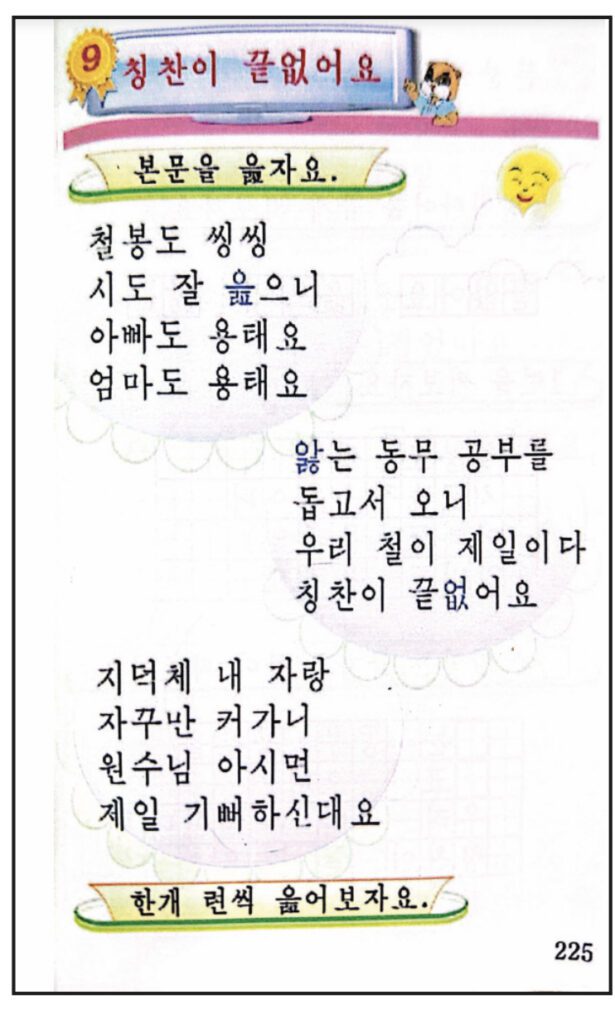 9 칭찬이 끝없어요
본문을 읊자요.
철봉도 씽씽
시도 잘 읊으니
아빠도 용태요
엄마도 용태요
앓는 동무 공부를
돕고서 오니
우리 철이 제일이다
칭찬이 끝없어요
지덕체 내 자랑
자꾸만 커가니
원수님 아시면
제일 기뻐하신대요
한개 련씩 읊어보자요.
225